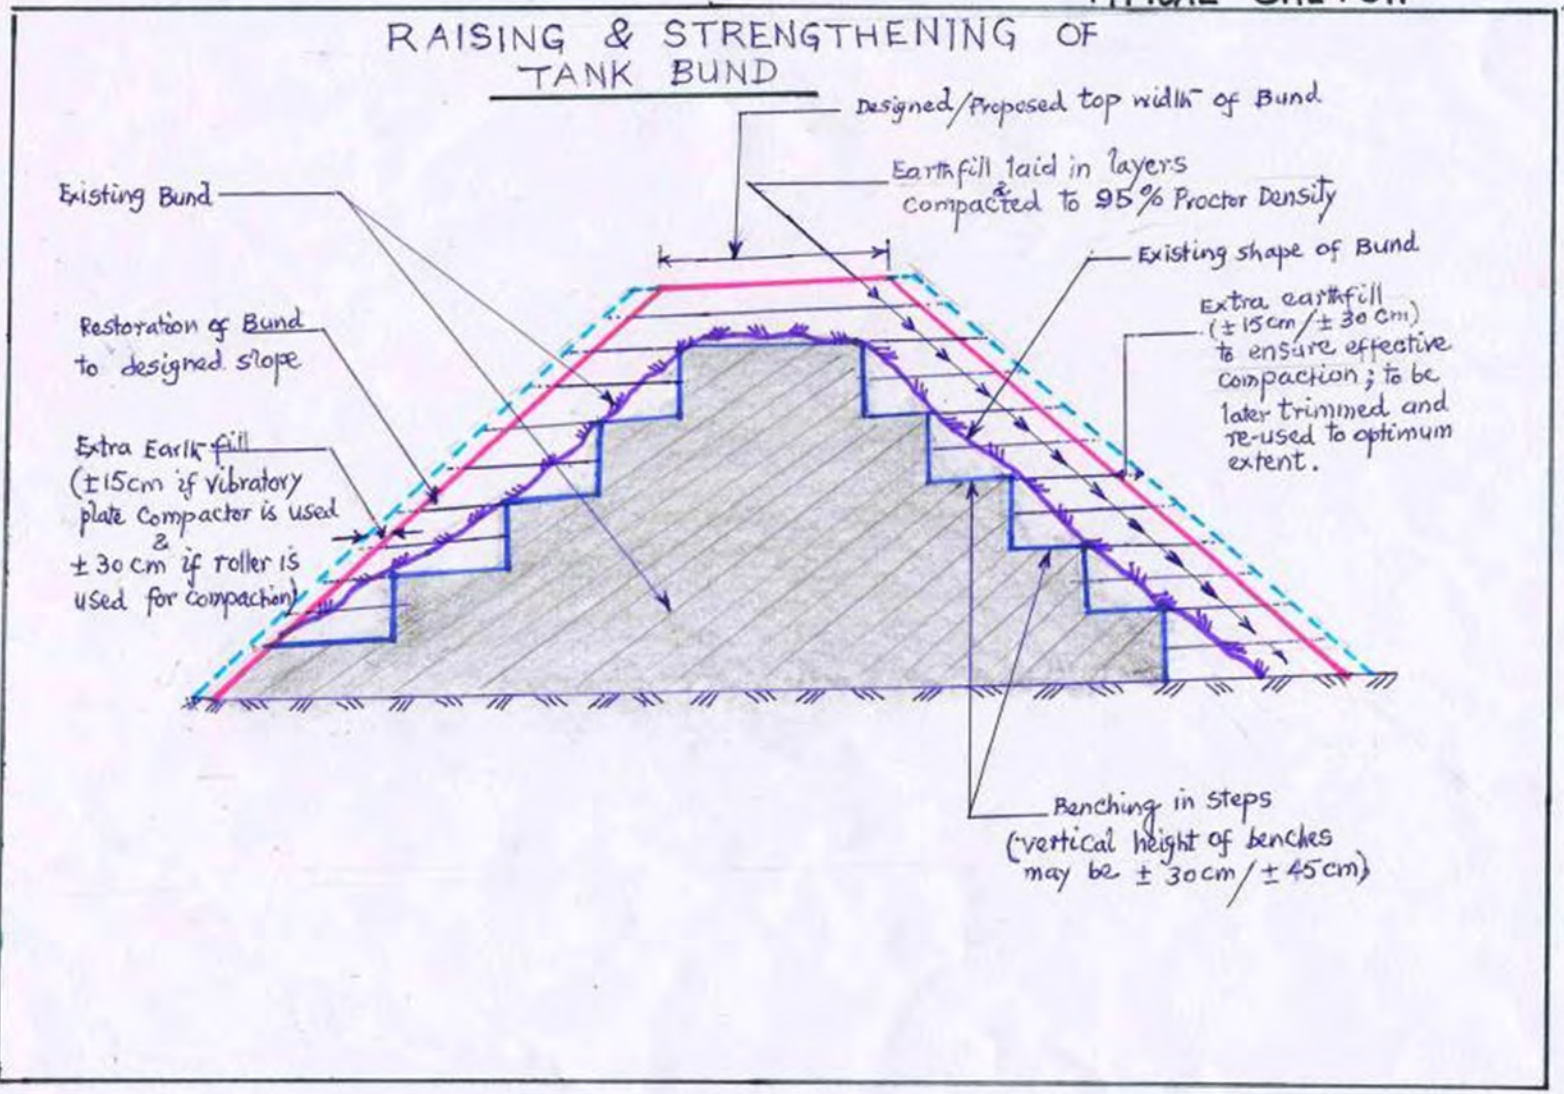 RAISING & STRENGTHENING OF
TANK BUND
Designed/Proposed top width of Bund
Earthfill laid in layers
&
compacted to 95% Proctor Density
Existing Bund
Existing shape of Bund
Restoration of Bund
to designed slope
Extra earthfill
(±15cm/±30cm)
to ensure effective
compaction; to be
later trimmed and
re-used to optimum
extent.
Extra Earth fill
(±15cm if vibratory
plate compactor is used
&
±30cm if roller is
used for compaction)
Benching in steps
(vertical height of benches
may be ±30cm/±45cm)